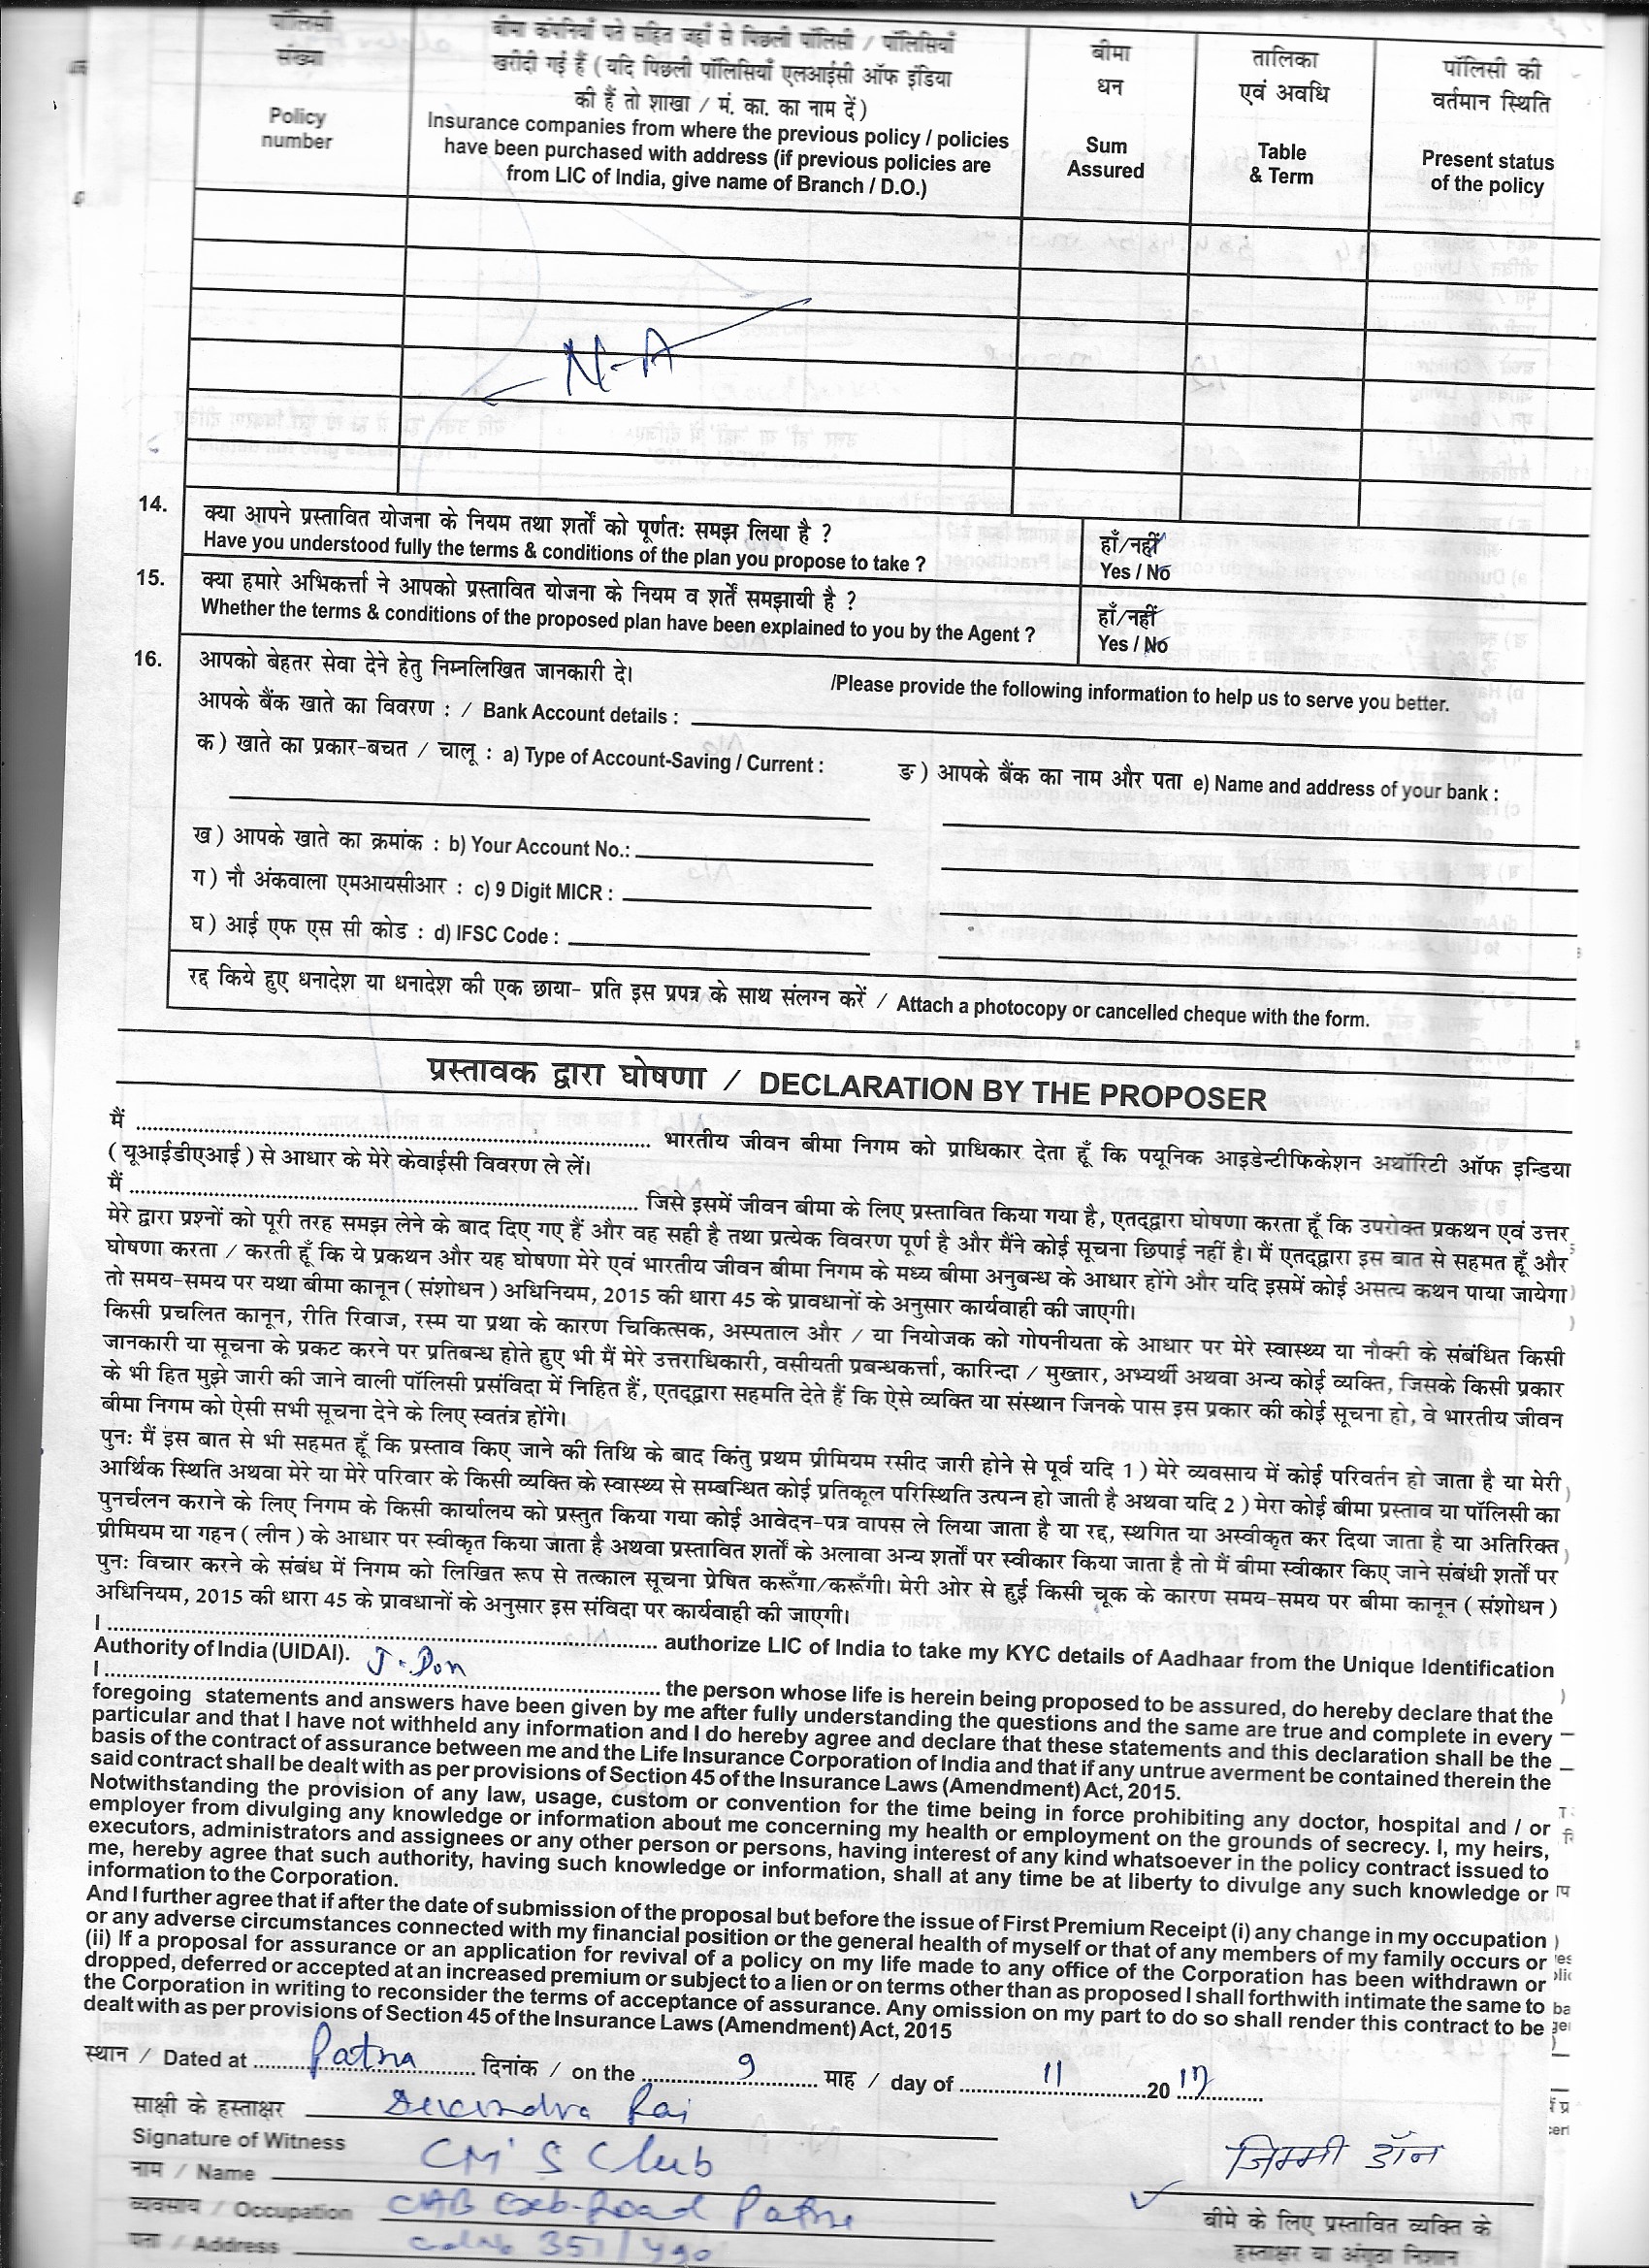 पॉलिसी
संख्या
Policy
number
बीमा कंपनियाँ पते सहित जहाँ से पिछली पॉलिसी / पॉलिसियाँ
खरीदी गई हैं (यदि पिछली पॉलिसियाँ एलआईसी ऑफ इंडिया
की हैं तो शाखा / मं. का. का नाम दें)
Insurance companies from where the previous policy / policies
have been purchased with address (if previous policies are
from LIC of India, give name of Branch / D.O.)
बीमा
धन
Sum
Assured
तालिका
एवं अवधि
Table
& Term
पॉलिसी की
वर्तमान स्थिति
Present status
of the policy
N-A
14. क्या आपने प्रस्तावित योजना के नियम तथा शर्तों को पूर्णतः समझ लिया है ?
Have you understood fully the terms & conditions of the plan you propose to take ?
हाँ/नहीं
Yes / No
15. क्या हमारे अभिकर्त्ता ने आपको प्रस्तावित योजना के नियम व शर्तें समझायी है ?
Whether the terms & conditions of the proposed plan have been explained to you by the Agent ?
हाँ/नहीं
Yes / No
16. आपको बेहतर सेवा देने हेतु निम्नलिखित जानकारी दे। /Please provide the following information to help us to serve you better.
आपके बैंक खाते का विवरण : / Bank Account details :
क) खाते का प्रकार-बचत / चालू : a) Type of Account-Saving / Current :
ङ) आपके बैंक का नाम और पता e) Name and address of your bank :
ख) आपके खाते का क्रमांक : b) Your Account No.:
ग) नौ अंकवाला एमआयसीआर : c) 9 Digit MICR :
घ) आई एफ एस सी कोड : d) IFSC Code :
रद्द किये हुए धनादेश या धनादेश की एक छाया- प्रति इस प्रपत्र के साथ संलग्न करें / Attach a photocopy or cancelled cheque with the form.
प्रस्तावक द्वारा घोषणा / DECLARATION BY THE PROPOSER
मैं ........ भारतीय जीवन बीमा निगम को प्राधिकार देता हूँ कि पयूनिक आइडेन्टीफिकेशन अथॉरिटी ऑफ इन्डिया
(यूआईडीएआई) से आधार के मेरे केवाईसी विवरण ले लें।
मैं ........ जिसे इसमें जीवन बीमा के लिए प्रस्तावित किया गया है, एतद्द्वारा घोषणा करता हूँ कि उपरोक्त प्रकथन एवं उत्तर
मेरे द्वारा प्रश्नों को पूरी तरह समझ लेने के बाद दिए गए हैं और वह सही है तथा प्रत्येक विवरण पूर्ण है और मैंने कोई सूचना छिपाई नहीं है। मैं एतद्द्वारा इस बात से सहमत हूँ और
घोषणा करता / करती हूँ कि ये प्रकथन और यह घोषणा मेरे एवं भारतीय जीवन बीमा निगम के मध्य बीमा अनुबन्ध के आधार होंगे और यदि इसमें कोई असत्य कथन पाया जायेगा
तो समय-समय पर यथा बीमा कानून (संशोधन) अधिनियम, 2015 की धारा 45 के प्रावधानों के अनुसार कार्यवाही की जाएगी।
किसी प्रचलित कानून, रीति रिवाज, रस्म या प्रथा के कारण चिकित्सक, अस्पताल और / या नियोजक को गोपनीयता के आधार पर मेरे स्वास्थ्य या नौकरी के संबंधित किसी
जानकारी या सूचना के प्रकट करने पर प्रतिबन्ध होते हुए भी मैं मेरे उत्तराधिकारी, वसीयती प्रबन्धकर्त्ता, कारिन्दा / मुख्तार, अभ्यर्थी अथवा अन्य कोई व्यक्ति, जिसके किसी प्रकार
के भी हित मुझे जारी की जाने वाली पॉलिसी प्रसंविदा में निहित हैं, एतद्द्वारा सहमति देते हैं कि ऐसे व्यक्ति या संस्थान जिनके पास इस प्रकार की कोई सूचना हो, वे भारतीय जीवन
बीमा निगम को ऐसी सभी सूचना देने के लिए स्वतंत्र होंगे।
पुनः मैं इस बात से भी सहमत हूँ कि प्रस्ताव किए जाने की तिथि के बाद किंतु प्रथम प्रीमियम रसीद जारी होने से पूर्व यदि 1) मेरे व्यवसाय में कोई परिवर्तन हो जाता है या मेरी
आर्थिक स्थिति अथवा मेरे या मेरे परिवार के किसी व्यक्ति के स्वास्थ्य से सम्बन्धित कोई प्रतिकूल परिस्थिति उत्पन्न हो जाती है अथवा यदि 2) मेरा कोई बीमा प्रस्ताव या पॉलिसी का
पुनर्चलन कराने के लिए निगम के किसी कार्यालय को प्रस्तुत किया गया कोई आवेदन-पत्र वापस ले लिया जाता है या रद्द, स्थगित या अस्वीकृत कर दिया जाता है या अतिरिक्त
प्रीमियम या गहन (लीन) के आधार पर स्वीकृत किया जाता है अथवा प्रस्तावित शर्तों के अलावा अन्य शर्तों पर स्वीकार किया जाता है तो मैं बीमा स्वीकार किए जाने संबंधी शर्तों पर
पुनः विचार करने के संबंध में निगम को लिखित रूप से तत्काल सूचना प्रेषित करूँगा/करूँगी। मेरी ओर से हुई किसी चूक के कारण समय-समय पर बीमा कानून (संशोधन)
अधिनियम, 2015 की धारा 45 के प्रावधानों के अनुसार इस संविदा पर कार्यवाही की जाएगी।
I ........ authorize LIC of India to take my KYC details of Aadhaar from the Unique Identification
Authority of India (UIDAI).
I ... J. Don ... the person whose life is herein being proposed to be assured, do hereby declare that the
foregoing statements and answers have been given by me after fully understanding the questions and the same are true and complete in every
particular and that I have not withheld any information and I do hereby agree and declare that these statements and this declaration shall be the
basis of the contract of assurance between me and the Life Insurance Corporation of India and that if any untrue averment be contained therein the
said contract shall be dealt with as per provisions of Section 45 of the Insurance Laws (Amendment) Act, 2015.
Notwithstanding the provision of any law, usage, custom or convention for the time being in force prohibiting any doctor, hospital and / or
employer from divulging any knowledge or information about me concerning my health or employment on the grounds of secrecy. I, my heirs,
executors, administrators and assignees or any other person or persons, having interest of any kind whatsoever in the policy contract issued to
me, hereby agree that such authority, having such knowledge or information, shall at any time be at liberty to divulge any such knowledge or
information to the Corporation.
And I further agree that if after the date of submission of the proposal but before the issue of First Premium Receipt (i) any change in my occupation
or any adverse circumstances connected with my financial position or the general health of myself or that of any members of my family occurs or
(ii) If a proposal for assurance or an application for revival of a policy on my life made to any office of the Corporation has been withdrawn or
dropped, deferred or accepted at an increased premium or subject to a lien or on terms other than as proposed I shall forthwith intimate the same to
the Corporation in writing to reconsider the terms of acceptance of assurance. Any omission on my part to do so shall render this contract to be
dealt with as per provisions of Section 45 of the Insurance Laws (Amendment) Act, 2015
स्थान / Dated at Patna दिनांक / on the 9 माह / day of 11 20 17
साक्षी के हस्ताक्षर Rai
Signature of Witness
नाम / Name CM'S Club
व्यवसाय / Occupation Road Patna
पता / Address 351/490
जिम्मी डॉन
बीमे के लिए प्रस्तावित व्यक्ति के
हस्ताक्षर या अंगूठा निशान